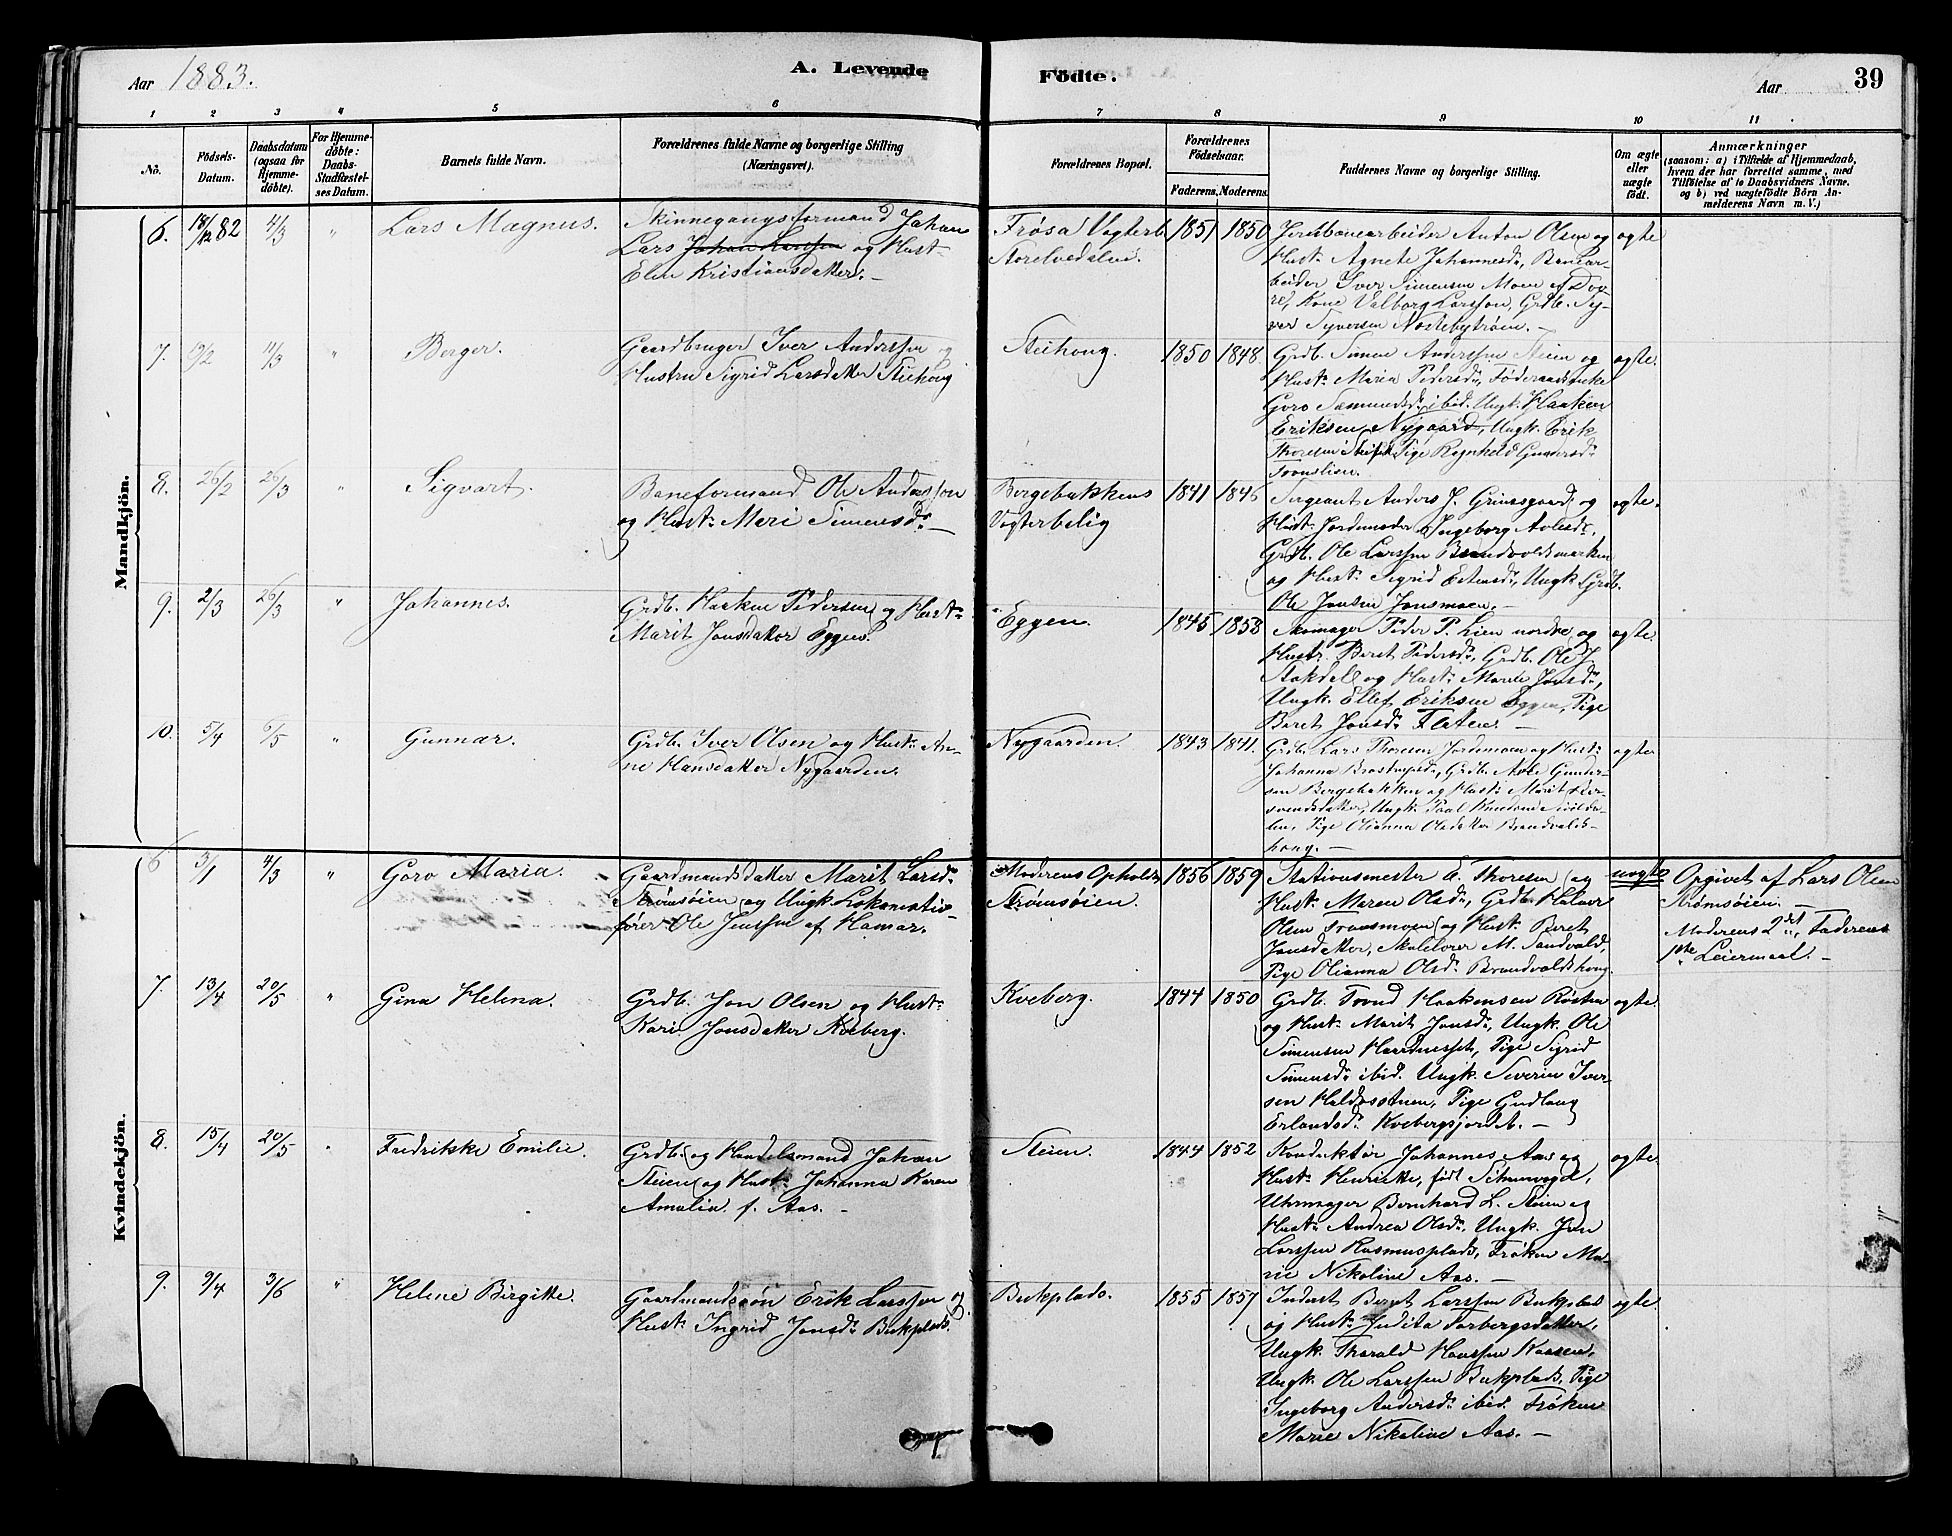 Aar 1883.
A. Levende Fødte.
Aar
39
1 2 3 4 5 6 7 8 9 10 11
No.
Fødsels-Datum.
Daabsdatum (ogsaa for Hjemmedøbte).
For Hjemmedøbte: Daabs-Stadfæstelses Datum.
Barnets fulde Navn.
Forældrenes fulde Navne og borgerlige Stilling (Næringsvei).
Forældrenes Bopæl.
Forældrenes Fødselsaar.
Faderens. Moderens.
Faddernes Navne og borgerlige Stilling.
Om ægte eller uægte født.
Anmærkninger
(saasom: a) i Tilfælde af Hjemmedaab, hvem der har forrettet samme, med Tilføielse af to Daabsvidners Navne, og b) ved uægtefødte Børn Anmelderens Navn m. V.)
Mandkjøn.
6. 18/12 82 4/3 " Lars Magnus.
Skinnegangsformand Johan
Lars Johan Larssen og Hust.
Elen Kristiansdatter. —
Frøsa Vogterb.
1851 1850
Jernbanearbeider Anton Olsen og
Hust. Agnete Johannesd., Banear-
beider Iver Simensen Moen af Dov-
re, Kone Valborg Larssen, Grdb. Sy-
ver Syversen Nordstebytrøen. —
ægte
7. 19/2 4/3 " Berger.
Gaardbruger Iver Anderssen og
Hustru Sigrid Larsdatter Steihoug
Steihoug.
1850 1848
Grdb. Simen Anderssen Steien og
Hust. Maria Pedersd., Føderaadsenke
Goro Sæmundsd. ibid. Ungk. Haaken
Eriksen Nygaard, Ungk. Erik
Thoresen Pige Ragnhild Gundersd.
Tronslien.
ægte.
8. 26/2 26/3 " Sigvart.
Baneformand Ole Anderssen
og Hust. Meri Simensd. —
Bergebakkens
Vogterbolig
1841 1846
Sergeant Anders J. Grimsgaard og
Hust. Jordemoder Ingeborg Aolesd.,
Grdb. Ole Larssen Brandvoldsmarken
og Hust. Sigrid Estensd., Ungk. Grdb.
Ole Jonsen Jonsmoen. —
ægte.
9. 2/3 26/3 " Johannes.
Grdb. Haaken Pedersen og Hust.
Marit Jonsdatter Eggen.
Eggen.
1845 1858
Skomager Peder P. Lien nordre og
Hustr. Beret Pedersd., Grdb. Ole J.
Stokdel og Hust. Marie Jonsd.,
Ungk. Ellef Eriksen Eggen, Pige
Beret Jonsd. Flaten. —
ægte.
10. 5/4 6/5 " Gunnar.
Grdb. Iver Olsen og Hust. An-
ne Hansdatter Nygaarden.
Nygaarden.
1843 1841.
Grdb. Lars Thoresen Jordemoen og Hust.
Johanna Grdb. Aole Gunder-
sen Bergebakken og Hust. Marit
Ungk. Paal Knudsen
Pige Olianna Olsdatter Brandvolds-
houg. —
ægte
Kvindekjøn.
6 3/1 4/3 " Goro Maria.
Gaardmandsdatter Marit Larsd.
Strømsøien og Ungk. Lokomotiv-
fører Ole Jenssen af Hamar.
Moderens Ophold
Strømsøien.
1856 1859
Stationsmester E. Thoresen og
Hust. Maren Olsd., Grdb. Halvor
Olsen Tronsmoen og Hust. Beret
Jonsdatter, Skolelærer M. Sandvold,
Pige Olianna Olsd. Brandvoldshoug.
uægte
Opgivet af Lars Olsen
Strømsøien. —
Moderens 2det, Faderens
1ste Leiermaal. —
7. 13/4 20/5 " Gina Helena.
Grdb. Jon Olsen og Hust.
Kari Jonsdatter Kveberg.
Kveberg.
1844 1850
Grdb. Trond Haakensen Røsten
og Hust. Marit Jonsd., Ungk. Ole
Simensen Haardnesset, Pige Sigrid
Simensd. ibid. Ungk. Severin Iver-
sen Haldosstuen, Pige Gudlaug
Erlandsd. Kvebergsjordet. —
ægte.
8. 15/4 20/5 " Fredrikke Emilie.
Grdb. og Handelsmand Johan
Steien og Hust. Johanna Karen
Amalia. f. Aas. —
Steien.
1844 1852
Konduktør Johannes Aas og
Hust. Henrikke, født Schwensgd,
Uhrmager Bernhard L. Steien og
Hust. Andrea Olsd., Ungk. Jon
Larssen Rasmusplads, Frøken Ma-
rie Nikoline Aas. —
ægte.
9. 9/4 3/6 " Helene Birgitte.
Gaardmandssøn Erik Larssen og
Hust. Ingrid Jonsd. Bukplads.
Bukplads.
1855 1857
Inderst Bernt Larssen Bukplads
og Hust. Judita Torbergsdatter,
Ungk. Thorald Hanssen Kaasen,
Ungk. Ole Larssen Bukplads, Pige
Ingeborg Andersd. ibid. Frøken
Marie Nikoline Aas. —
ægte.